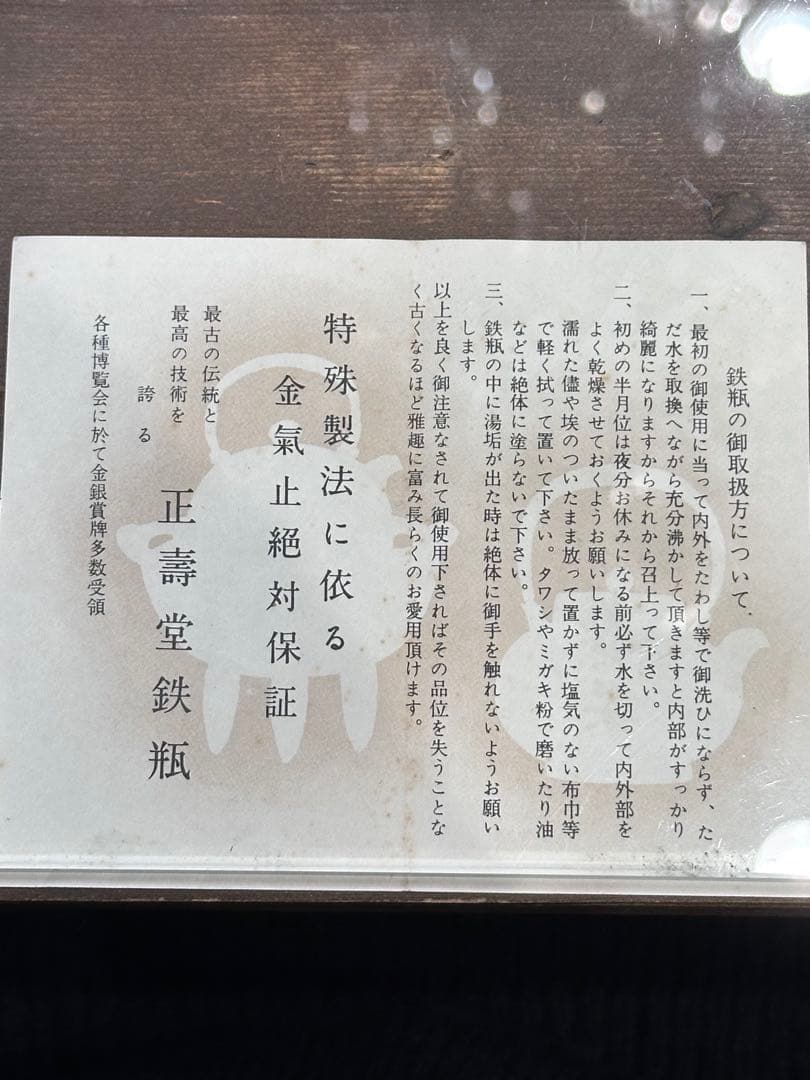 鉄瓶の御取扱方について.
一、最初の御使用に当って内外をたわし等で御洗ひにならず、た
だ水を取換へながら充分沸かして頂きますと内部がすっかり
綺麗になりますからそれから召上って下さい。
二、初めの半月位は夜分お休みになる前必ず水を切って内外部を
よく乾燥させておくようお願いします。
濡れた儘や埃のついたまま放って置かずに塩気のない布巾等
で軽く拭って置いて下さい。タワシやミガキ粉で磨いたり油
などは絶体に塗らないで下さい。
三、鉄瓶の中に湯垢が出た時は絶体に御手を触れないようお願い
します。
以上を良く御注意なされて御使用下さればその品位を失うことな
く古くなるほど雅趣に富み長らくのお愛用頂けます。
特殊製法に依る
金氣止絕対保証
最古の伝統と
最高の技術を
誇る
正壽堂鉄瓶
各種博覧会に於て金銀賞牌多数受領